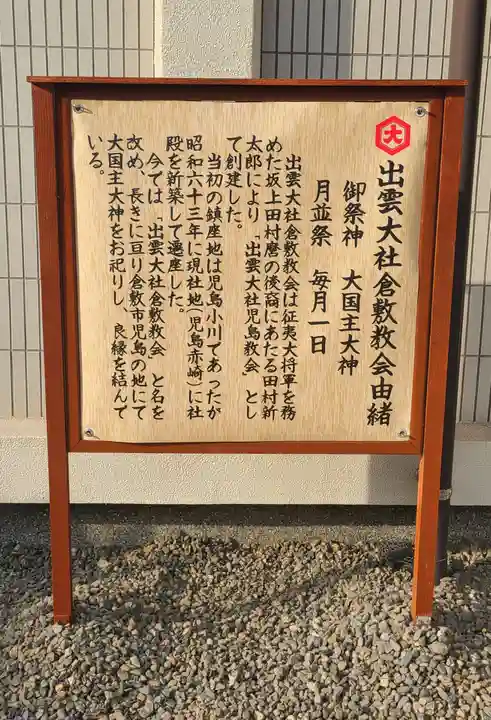 大
出雲大社倉敷教会由緒
御祭神 大国主大神
月並祭 毎月一日
出雲大社倉敷教会は征夷大将軍を務
めた坂上田村麿の後裔にあたる田村新
太郎により「出雲大社児島教会」とし
て創建した。
当初の鎮座地は児島小川であったが
昭和六十三年に現社地(児島赤崎)に社
殿を新築して遷座した。
今では「出雲大社倉敷教会」と名を
改め、長きに亘り倉敷市児島の地にて
大国主大神をお祀りし、良縁を結んで
いる。